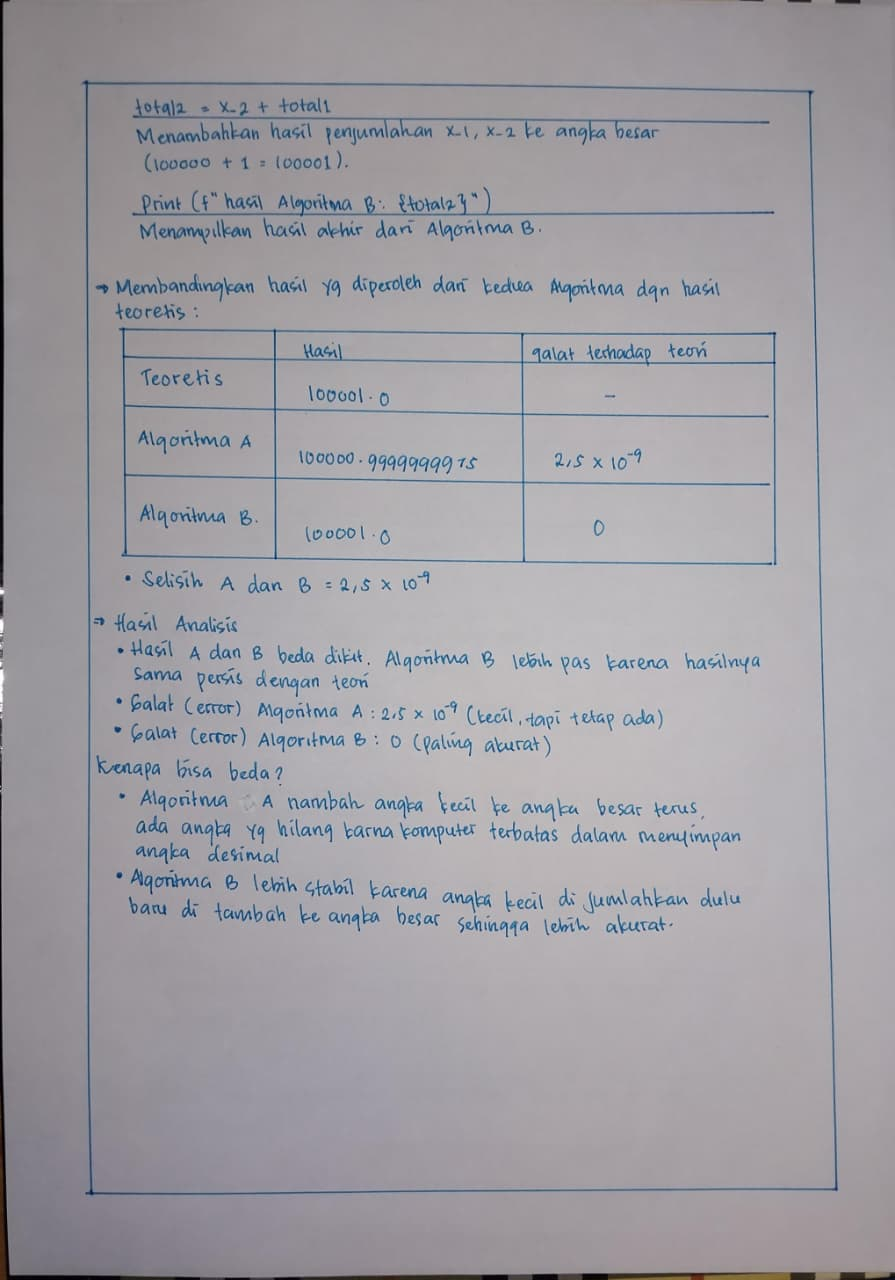 total2 = x_2 + total1
Menambahkan hasil penjumlahan x_1, x_2 ke angka besar
(100000 + 1 = 100001).
Print (f" hasil Algoritma B: {total2}")
Menampilkan hasil akhir dari Algoritma B.
→ Membandingkan hasil yg diperoleh dari kedua Algoritma dgn hasil
teoretis :
Hasil galat terhadap teori
Teoretis 100001.0 –
Algoritma A 100000.9999999975 2,5 x 10⁻⁹
Algoritma B. 100001.0 0
• Selisih A dan B = 2,5 x 10⁻⁹
⇒ Hasil Analisis
• Hasil A dan B beda dikit. Algoritma B lebih pas karena hasilnya
sama persis dengan teori
• Galat (error) Algoritma A : 2,5 x 10⁻⁹ (kecil, tapi tetap ada)
• Galat (error) Algoritma B : 0 (paling akurat)
Kenapa bisa beda?
• Algoritma A nambah angka kecil ke angka besar terus,
ada angka yg hilang karna komputer terbatas dalam menyimpan
angka desimal
• Algoritma B lebih stabil karena angka kecil di jumlahkan dulu
baru di tambah ke angka besar sehingga lebih akurat.